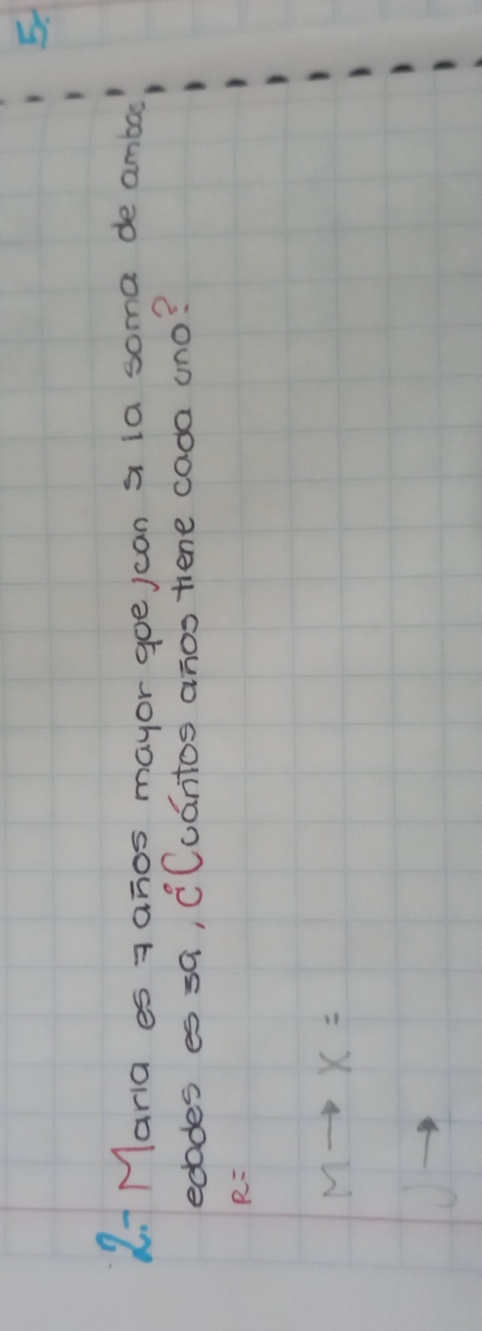 5.
2.- Maria es 7 años mayor que Juan si la soma de ambas
edades es 59, ¿Cuántos años tiene cada uno?
R=
M → X =
J →